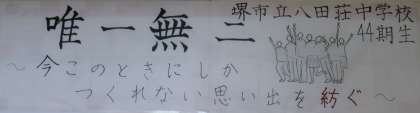 唯一無二
堺市立八田荘中学校
44期生
～今このときにしか
つくれない思い出を紡ぐ～